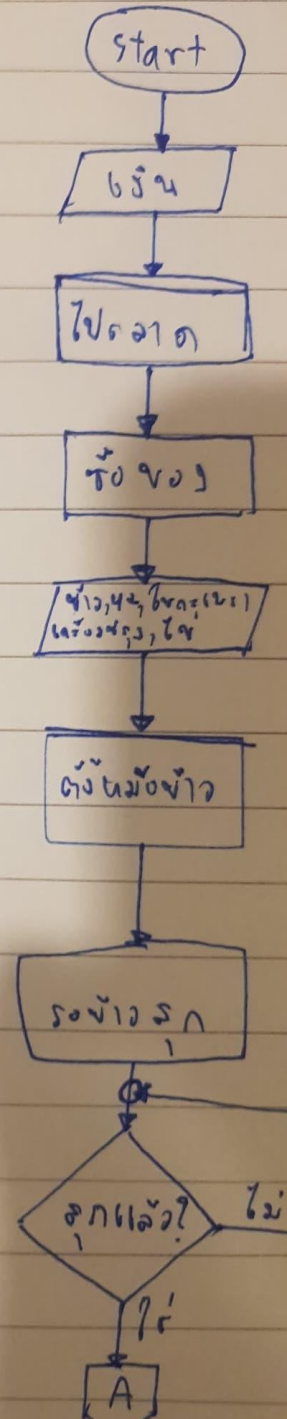 start
เงิน
ไปตลาด
ซื้อของ
ข้าว,หมู,ใบกระเพรา
เครื่องปรุง,ไข่
ตั้งหม้อข้าว
รอข้าวสุก
สุกแล้ว?
ไม่
ใช่
A